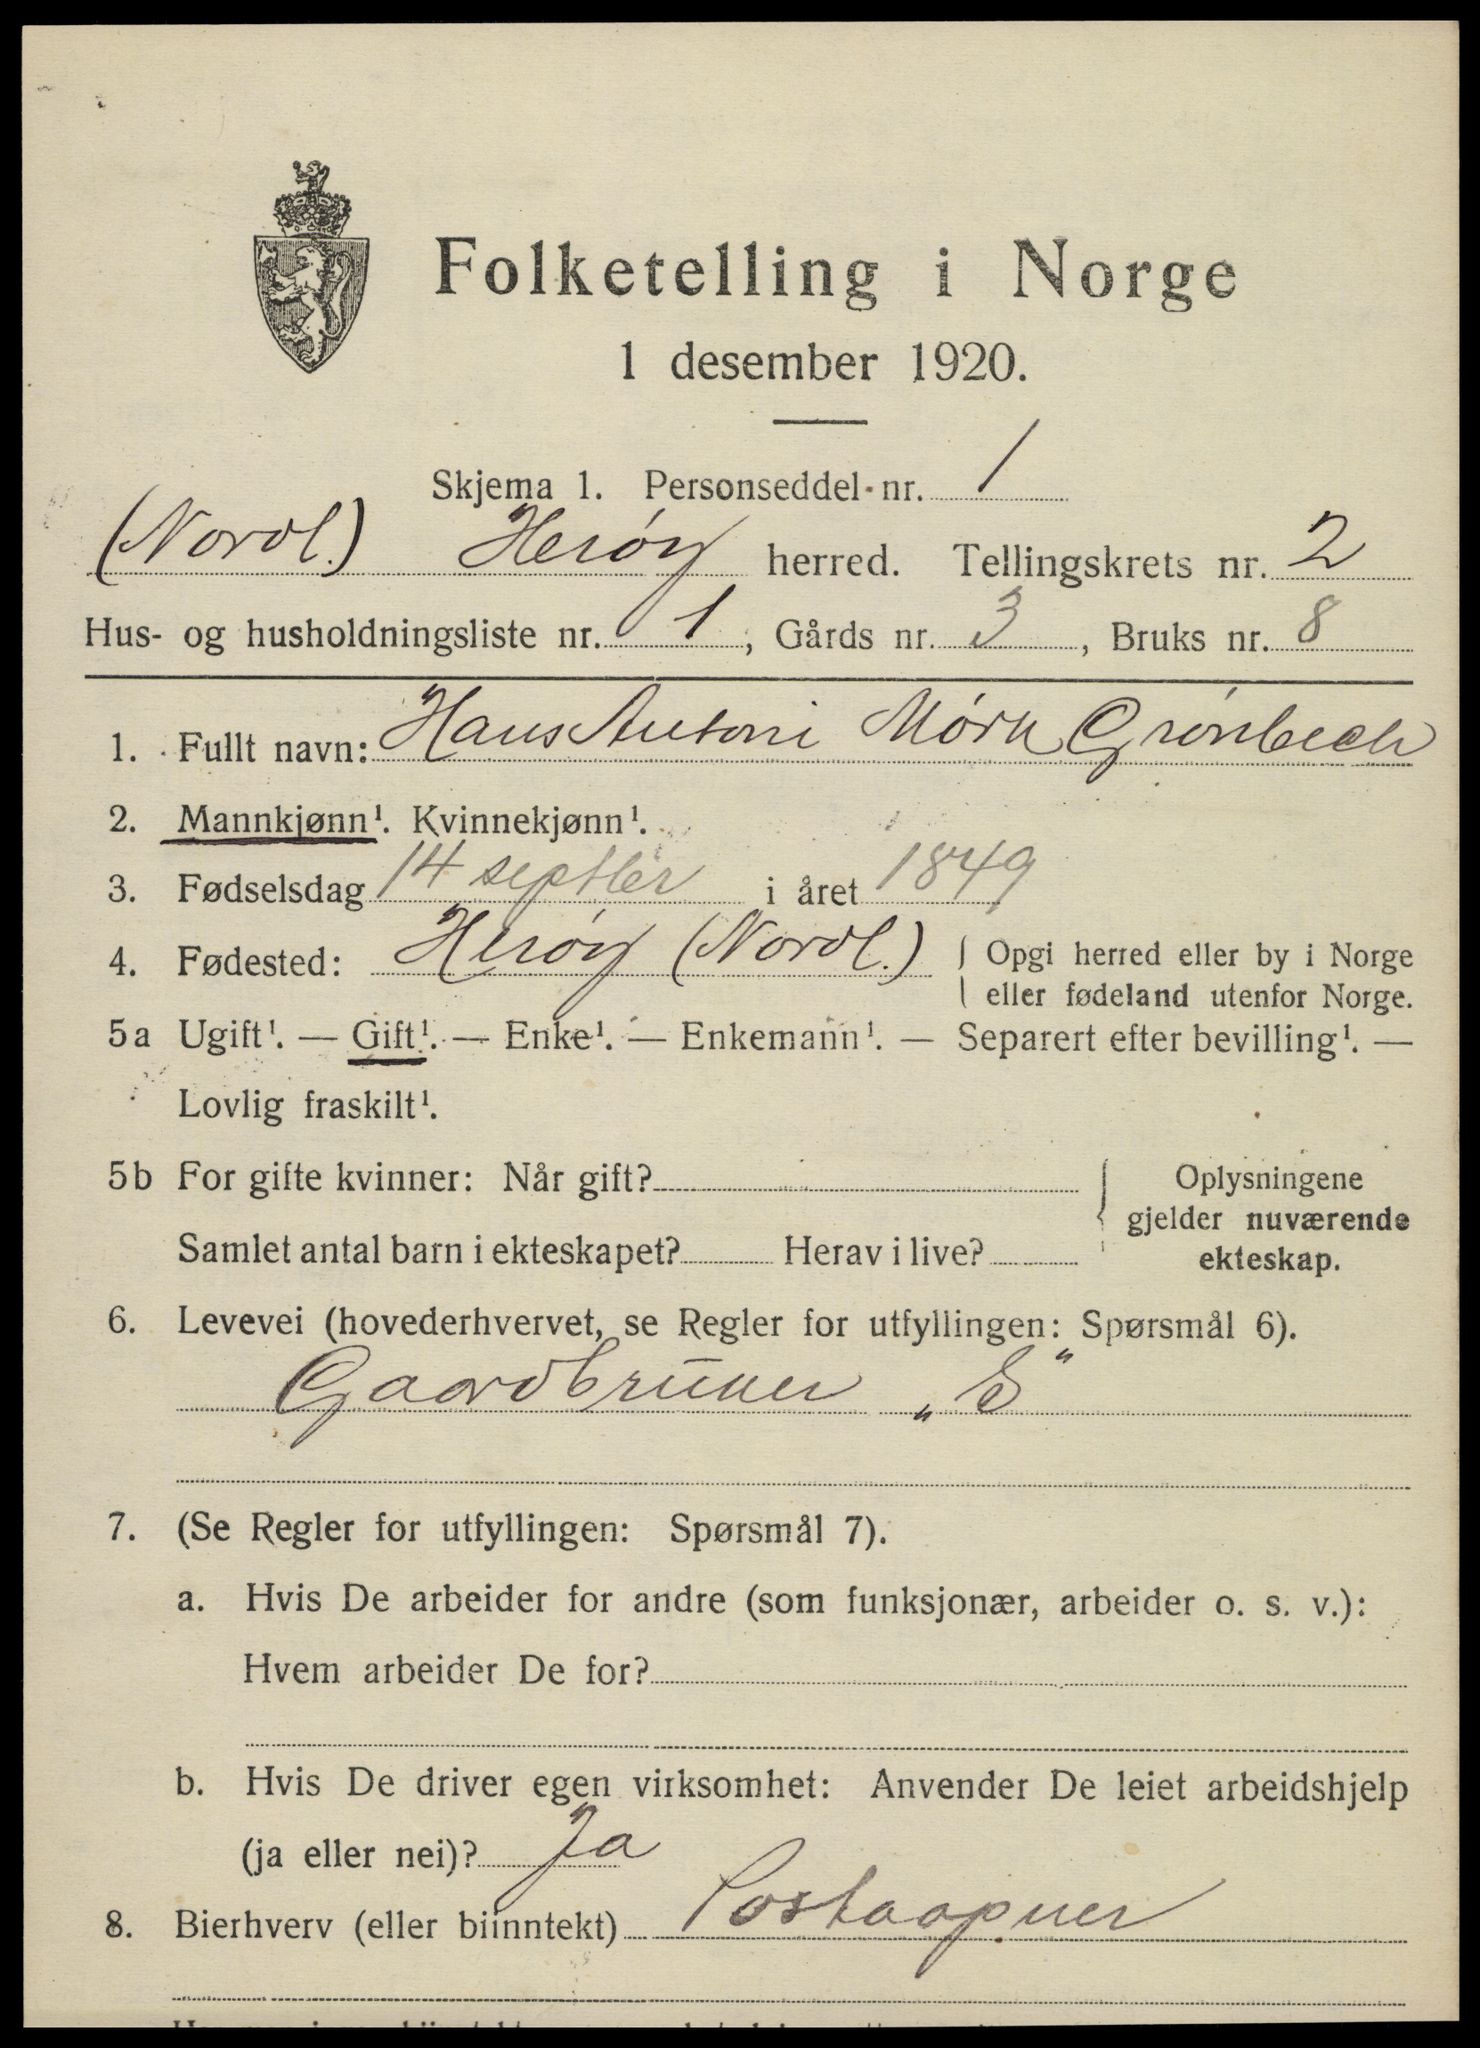 Folketelling i Norge
1 desember 1920.
Skjema 1. Personseddel nr. 1
(Nordl.) Herøy herred. Tellingskrets nr. 2
Hus- og husholdningsliste nr. 1, Gårds nr. 3, Bruks nr. 8
1. Fullt navn: Hans Antoni Mørk Grønbech
2. Mannkjønn¹. Kvinnekjønn¹.
3. Fødselsdag 14 septbr i året 1849
4. Fødested: Herøy (Nordl.) Opgi herred eller by i Norge
eller fødeland utenfor Norge.
5a Ugift¹. — Gift¹. — Enke¹. — Enkemann¹. — Separert efter bevilling¹. —
Lovlig fraskilt¹.
5b For gifte kvinner: Når gift? Oplysningene
gjelder nuværende
Samlet antal barn i ekteskapet? Herav i live? ekteskap.
6. Levevei (hovederhvervet, se Regler for utfyllingen: Spørsmål 6).
Gaardbruker „S"
7. (Se Regler for utfyllingen: Spørsmål 7).
a. Hvis De arbeider for andre (som funksjonær, arbeider o. s. v.):
Hvem arbeider De for?
b. Hvis De driver egen virksomhet: Anvender De leiet arbeidshjelp
(ja eller nei)? Ja
8. Bierhverv (eller biinntekt) Postaapner